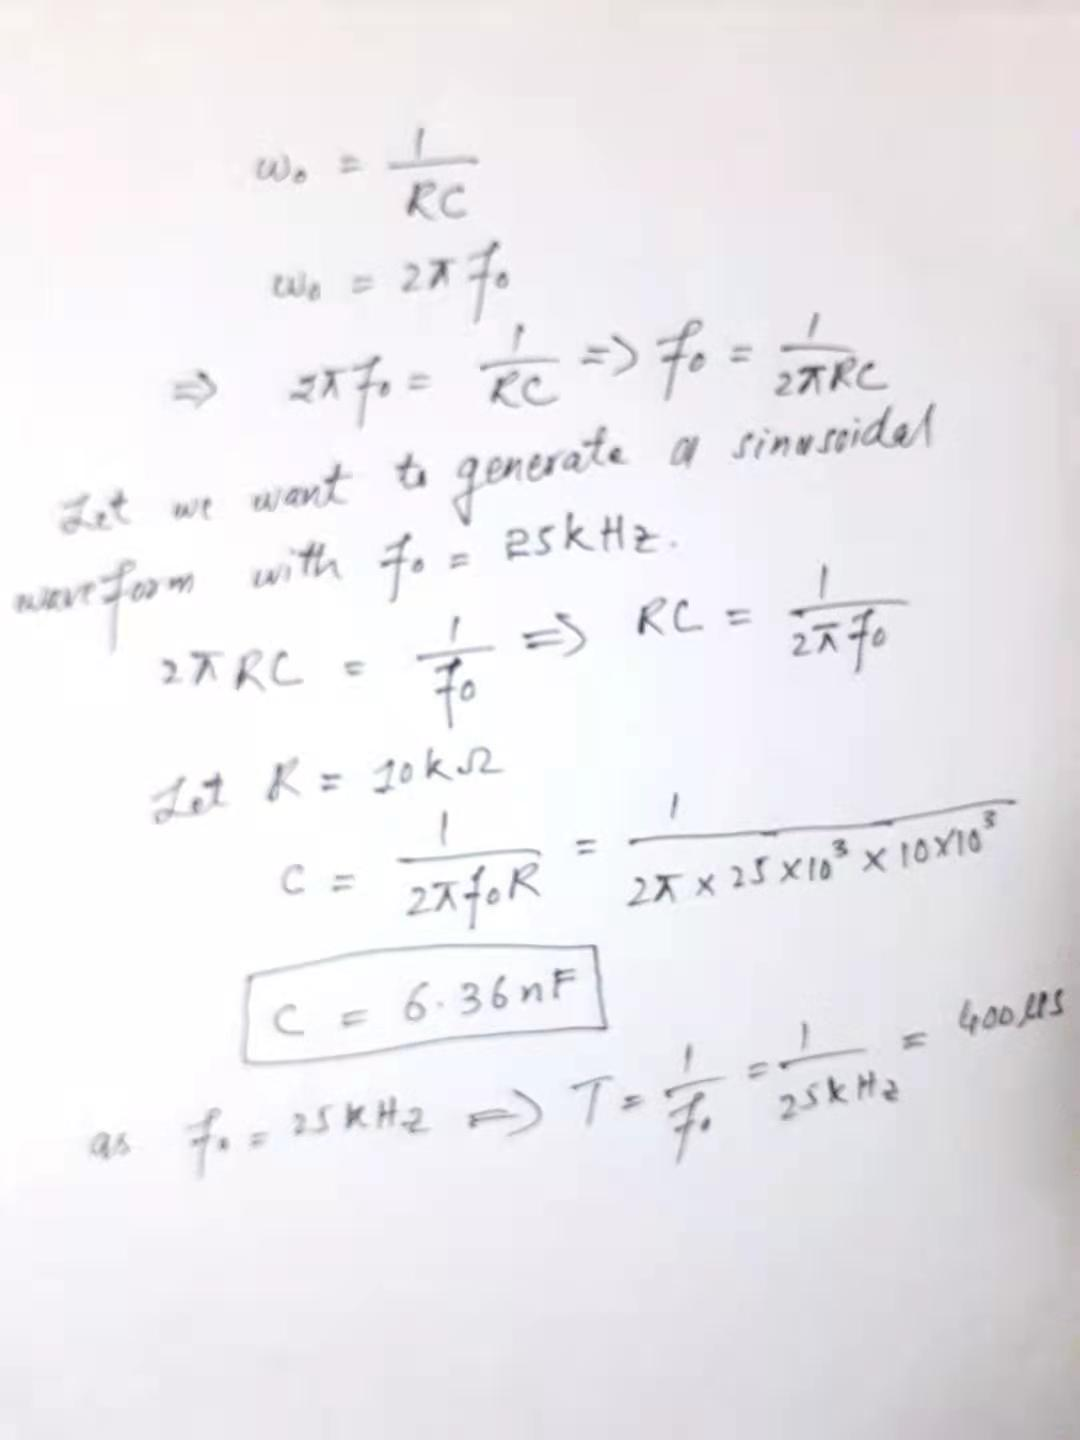 ω₀ = 1/RC
ω₀ = 2π f₀
⇒ 2π f₀ = 1/RC ⇒ f₀ = 1/2πRC
Let we want to generate a sinusoidal
waveform with f₀ = 25kHz.
2πRC = 1/f₀ ⇒ RC = 1/2πf₀
Let R = 10kΩ
C = 1/2πf₀R = 1/2π × 25×10³ × 10×10³
C = 6.36nF
as f₀ = 25kHz ⇒ T = 1/f₀ = 1/25kHz = 400µs